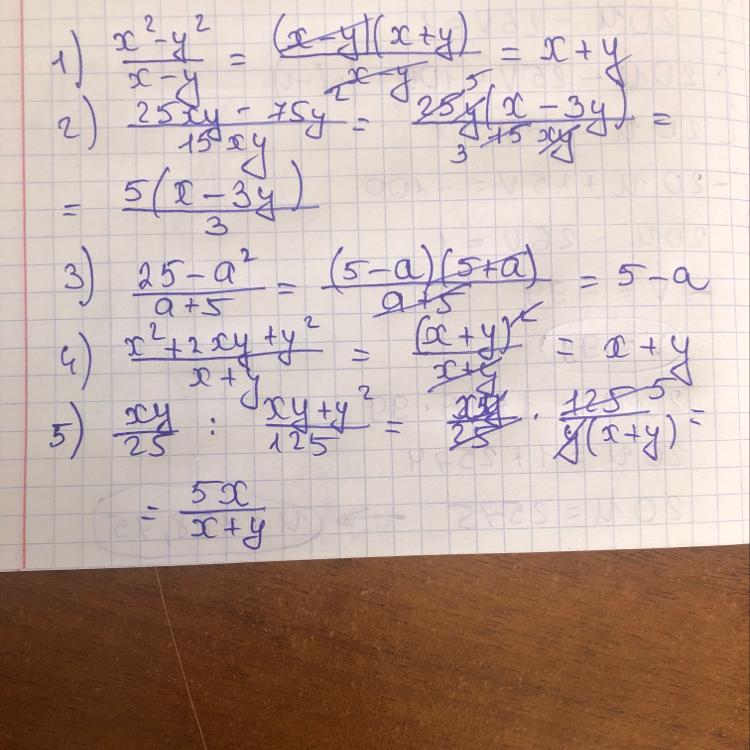 1) x²-y² / x-y = (x-y)(x+y) / x-y = x+y
2) 25xy - 75y² / 15xy = 25⁵y(x-3y) / ₃15xy =
= 5(x-3y) / 3
3) 25-a² / a+5 = (5-a)(5+a) / a+5 = 5-a
4) x²+2xy+y² / x+y = (x+y)² / x+y = x+y
5) xy / 25 : xy+y² / 125 = xy / 25 · 125⁵ / y(x+y) =
= 5x / x+y